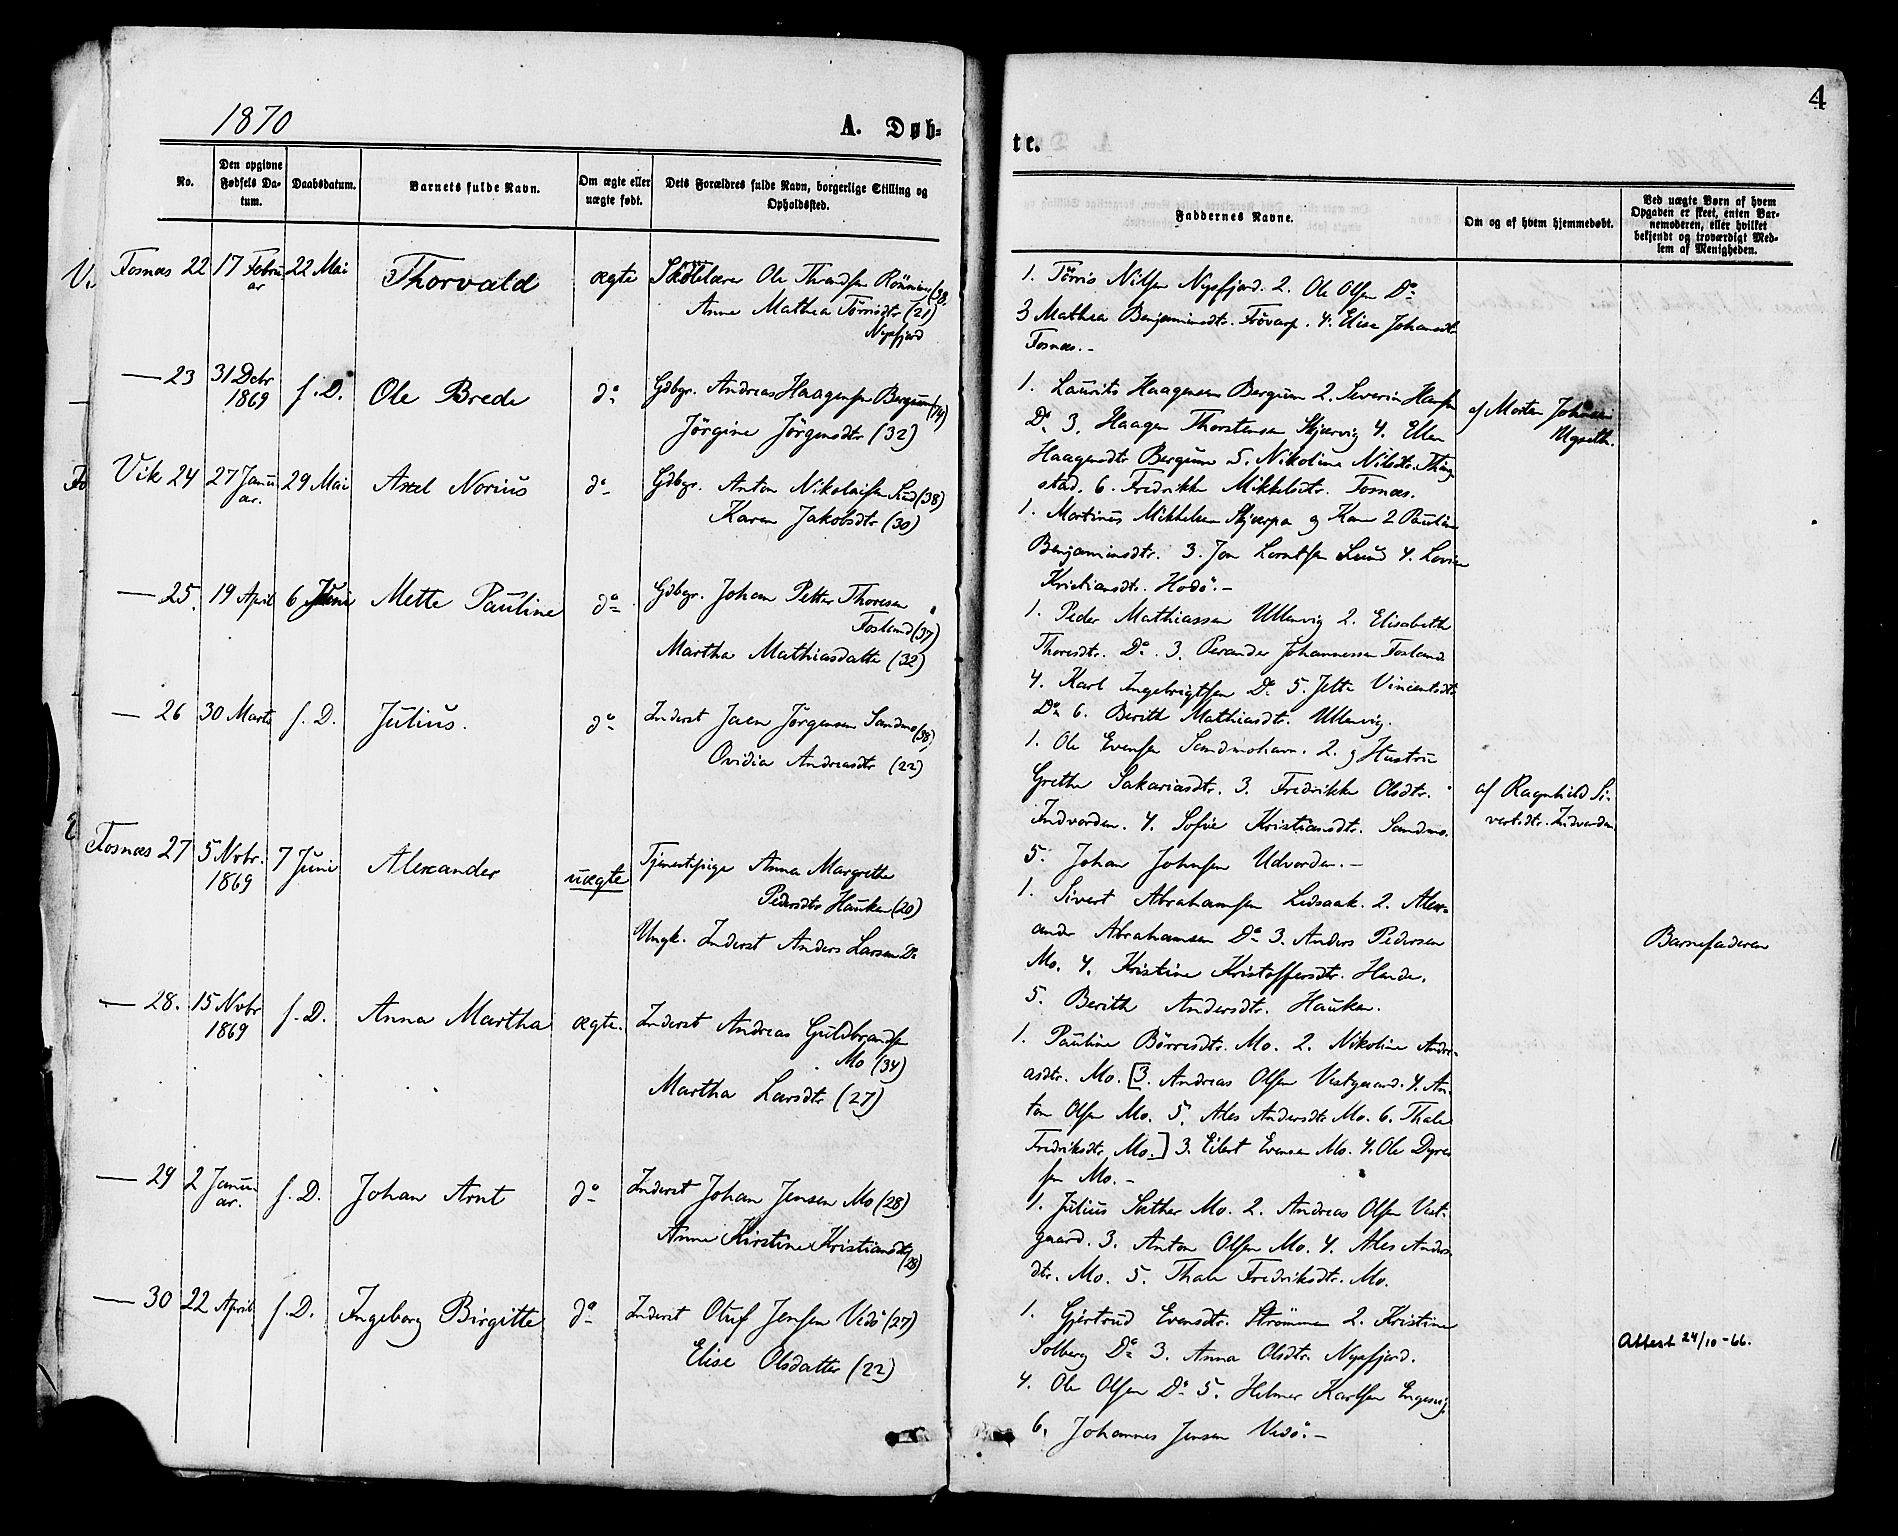 1870
A. Døb-
No.
Den opgivne Fødsels Da-
tum.
Daabsdatum.
Barnets fulde Navn.
Om ægte eller
uægte født.
Dets Forældres fulde Navn, borgerlige Stilling og
Opholdssted.
Fosnæs 22 17 Febru 22 Mai Thorvald ægte Skolelærer Ole Throndsen Rönning
ar Anne Mathea Törrisdtr (21)
Nysfjord
— 23 31 Decbr f. D. Ole Brede do Gdbgr. Andreas Haagensen Bergum (34)
1869 Jörgine Jörgensdtr (32)
Vik 24 27 Janu 29 Mai Axel Norius do Gdbgr. Anton Nikolaisen Lund (38)
ar. Karen Jakobsdtr (30)
— 25. 19 April 6 Juni Mette Pauline do Gdbgr. Johan Petter Thoresen
Fosland (37)
Martha Mathiasdatter (32)
— 26 30 Marts f. D. Julius. do Inderst Jaen Jörgensen Sandmo (38)
Ovidia Andreasdtr (22)
Fosnæs 27 5 Novbr. 7 Juni Alexander uægte Tjenestepige Anna Margrethe
1869 Pedersdtr Hauken (20)
Ungk. Inderst Anders Larsen Do
— 28. 15 Novbr f. D. Anna Martha ægte. Inderst Andreas Guldbrandsen
1869 Mo (34)
Martha Larsdtr (27)
— 29 2 Janu f. D. Johan Arnt do Inderst Johan Jensen Mo (28)
ar. Anne Kirstine Kristiansdtr (28)
— 30 22 April f. D. Ingeborg Birgitte do Inderst Oluf Jensen Vedö (27)
Elise Olsdatter (22)
4
te.
Faddernes Navne.
Om og af hvem hjemmedøbt.
Ved uægte Børn af hvem
Opgaven er skeet, enten Bar-
nemoderen, eller hvilket
bekjendt og troværdigt Med-
lem af Menigheden.
1. Törris Nilsen Nysfjord. 2. Ole Olsen Do
3 Mathea Benjaminsdtr. Frövarp. 4. Elise Johansdtr
Fosnæs. -
1. Laurits Haagensen Bergum 2. Severin Hansen
Do 3. Haagen Thorstensen Skjærvig 4. Ellen
Haagensdtr Bergum 5. Nikoline Nilsdtr. Thing-
stad. 6. Fredrikke Mikkelsdtr. Fosnæs.
af Morten Johnsen
Myseth.
1. Martinus Mikkelsen Skjærpa og Kone 2 Pauline
Benjaminsdtr. 3. Jon Lorntsen Lund 4. Lovise
Kristiansdtr. Hodö. -
1. Peder Mathiassen Ullervig 2. Elisabeth
Thoresdtr. Do. 3. Perander Johannessen Fosland
4. Karl Ingebrigtsen Do 5. Jette Vincentsdtr
Do 6. Berith Mathiasdtr. Ullervig.
1. Ole Evensen Sandmohavn. 2. og Hustru
Grethe Sakariasdtr. 3. Fredrikke Olsdtr.
Indvorden. 4. Sofie Kristiansdtr. Sandmo.
5. Johan Johnsen Udvorden. -
af Ragnhild Si-
vertsdtr. Indvorden
1. Sivert Abrahamsen Ledsaak. 2. Alex-
ander Abrahamsen Do 3. Anders Pedersen
Mo. 4. Kristine Kristoffersdtr. Hende.
5. Berith Andersdtr. Hauken.
Barnefaderen
1. Pauline Börresdtr. Mo. 2. Nikoline Andre-
asdtr. Mo. [3. Andreas Olsen Vestgaard. 4. An-
ton Olsen Mo. 5. Ales Andersdtr Mo. 6. Thale
Fredriksdtr. Mo.] 3. Eilert Evensen Mo. 4. Ole Dyre-
sen Mo. -
1. Julius Sæther Mo. 2. Andreas Olsen Vest-
gaard. 3. Anton Olsen Mo. 4. Ales Anders-
dtr. Mo. 5. Thale Fredriksdtr. Mo.
1. Gjertrud Evensdtr. Strömmen 2. Kristine
Solberg Do 3. Anna Olsdtr. Nysfjord.
4. Ole Olsen Do 5. Helmer Karlsen Engesvig
6. Johannes Jensen Vedö. -
Attest 24/10-66.